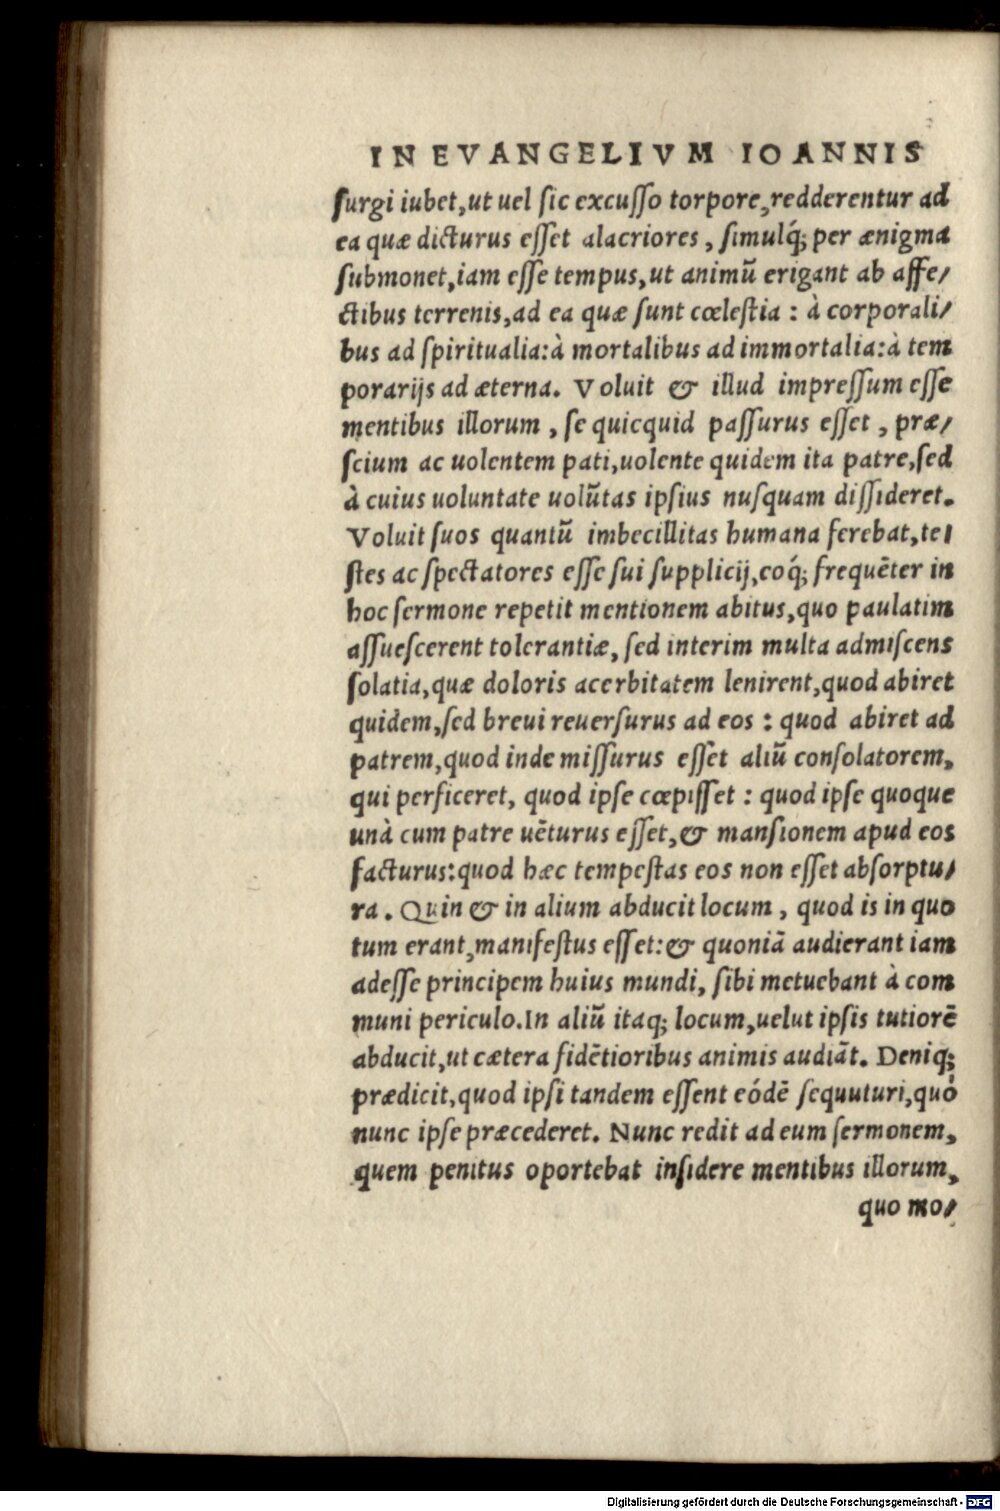 IN EVANGELIVM IOANNIS
ſurgi iubet,ut uel ſic excuſſo torpore,redderentur ad
ea quæ dicturus eſſet alacriores, ſimulq́; per ænigma
ſubmonet,iam eſſe tempus,ut animū erigant ab affe/
ctibus terrenis,ad ea quæ ſunt cœleſtia : à corporali/
bus ad ſpiritualia:à mortalibus ad immortalia:à tem
porarijs ad æterna. Voluit & illud impreſſum eſſe
mentibus illorum, ſe quicquid paſſurus eſſet, præ/
ſcium ac uolentem pati,uolente quidem ita patre,ſed
à cuius uoluntate uolūtas ipſius nuſquam diſſideret.
Voluit ſuos quantū imbecillitas humana ferebat,te/
ſtes ac ſpectatores eſſe ſui ſupplicij,eoq́; frequēter in
hoc ſermone repetit mentionem abitus,quo paulatim
aſſueſcerent tolerantiæ, ſed interim multa admiſcens
ſolatia,quæ doloris acerbitatem lenirent,quod abiret
quidem,ſed breui reuerſurus ad eos : quod abiret ad
patrem,quod inde miſſurus eſſet aliū conſolatorem,
qui perficeret, quod ipſe cœpiſſet : quod ipſe quoque
unà cum patre uēturus eſſet,& manſionem apud eos
facturus:quod hæc tempeſtas eos non eſſet abſorptu/
ra. Quin & in alium abducit locum, quod is in quo
tum erant,manifeſtus eſſet:& quoniā audierant iam
adeſſe principem huius mundi, ſibi metuebant à com
muni periculo.In aliū itaq; locum,uelut ipſis tutiorē
abducit,ut cætera fidētioribus animis audiāt. Deniq;
prædicit,quod ipſi tandem eſſent eódē ſequuturi,quò
nunc ipſe præcederet. Nunc redit ad eum ſermonem,
quem penitus oportebat inſidere mentibus illorum,
quo mo/
Digitalisierung gefördert durch die Deutsche Forschungsgemeinschaft - DFG